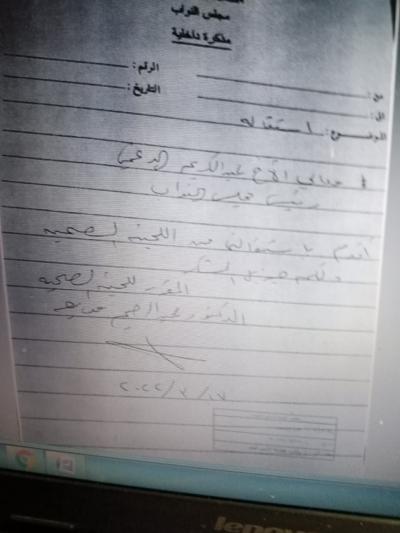 مجلس النواب
مذكرة داخلية
الرقم :
التاريخ :
من :
الى :
الموضوع : استقالة
معالي الأخ عبدالكريم الدغمي
رئيس مجلس النواب
أقدم باستقالتي من اللجنة الصحية
ولكم جزيل الشكر
المقرر للجنة الصحية
الدكتور
٢٠٢٢/٣/١٧
lenovo